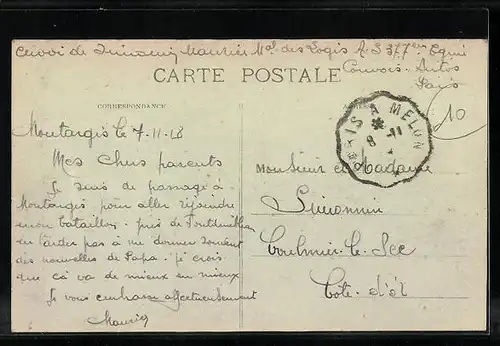 Envoi de Simonnin Maurice Mal des Logis A.S 377em Equi
Convois Autos
Paris
CARTE POSTALE
CORRESPONDANCE
10
IS A MELUN
8 -11
Montargis le 7-11-18
Mes chers parents
Je suis de passage à
Montargis pour aller rejoindre
mon bataillon près de Fontainebleau
ne tardez pas à me donner souvent
des nouvelles de Papa. je crois
que ça va de mieux en mieux
Je vous embrasse affectueusement
Maurice
Monsieur et Madame
Simonnin
Coulmier-le-Sec
Côte-d'Or